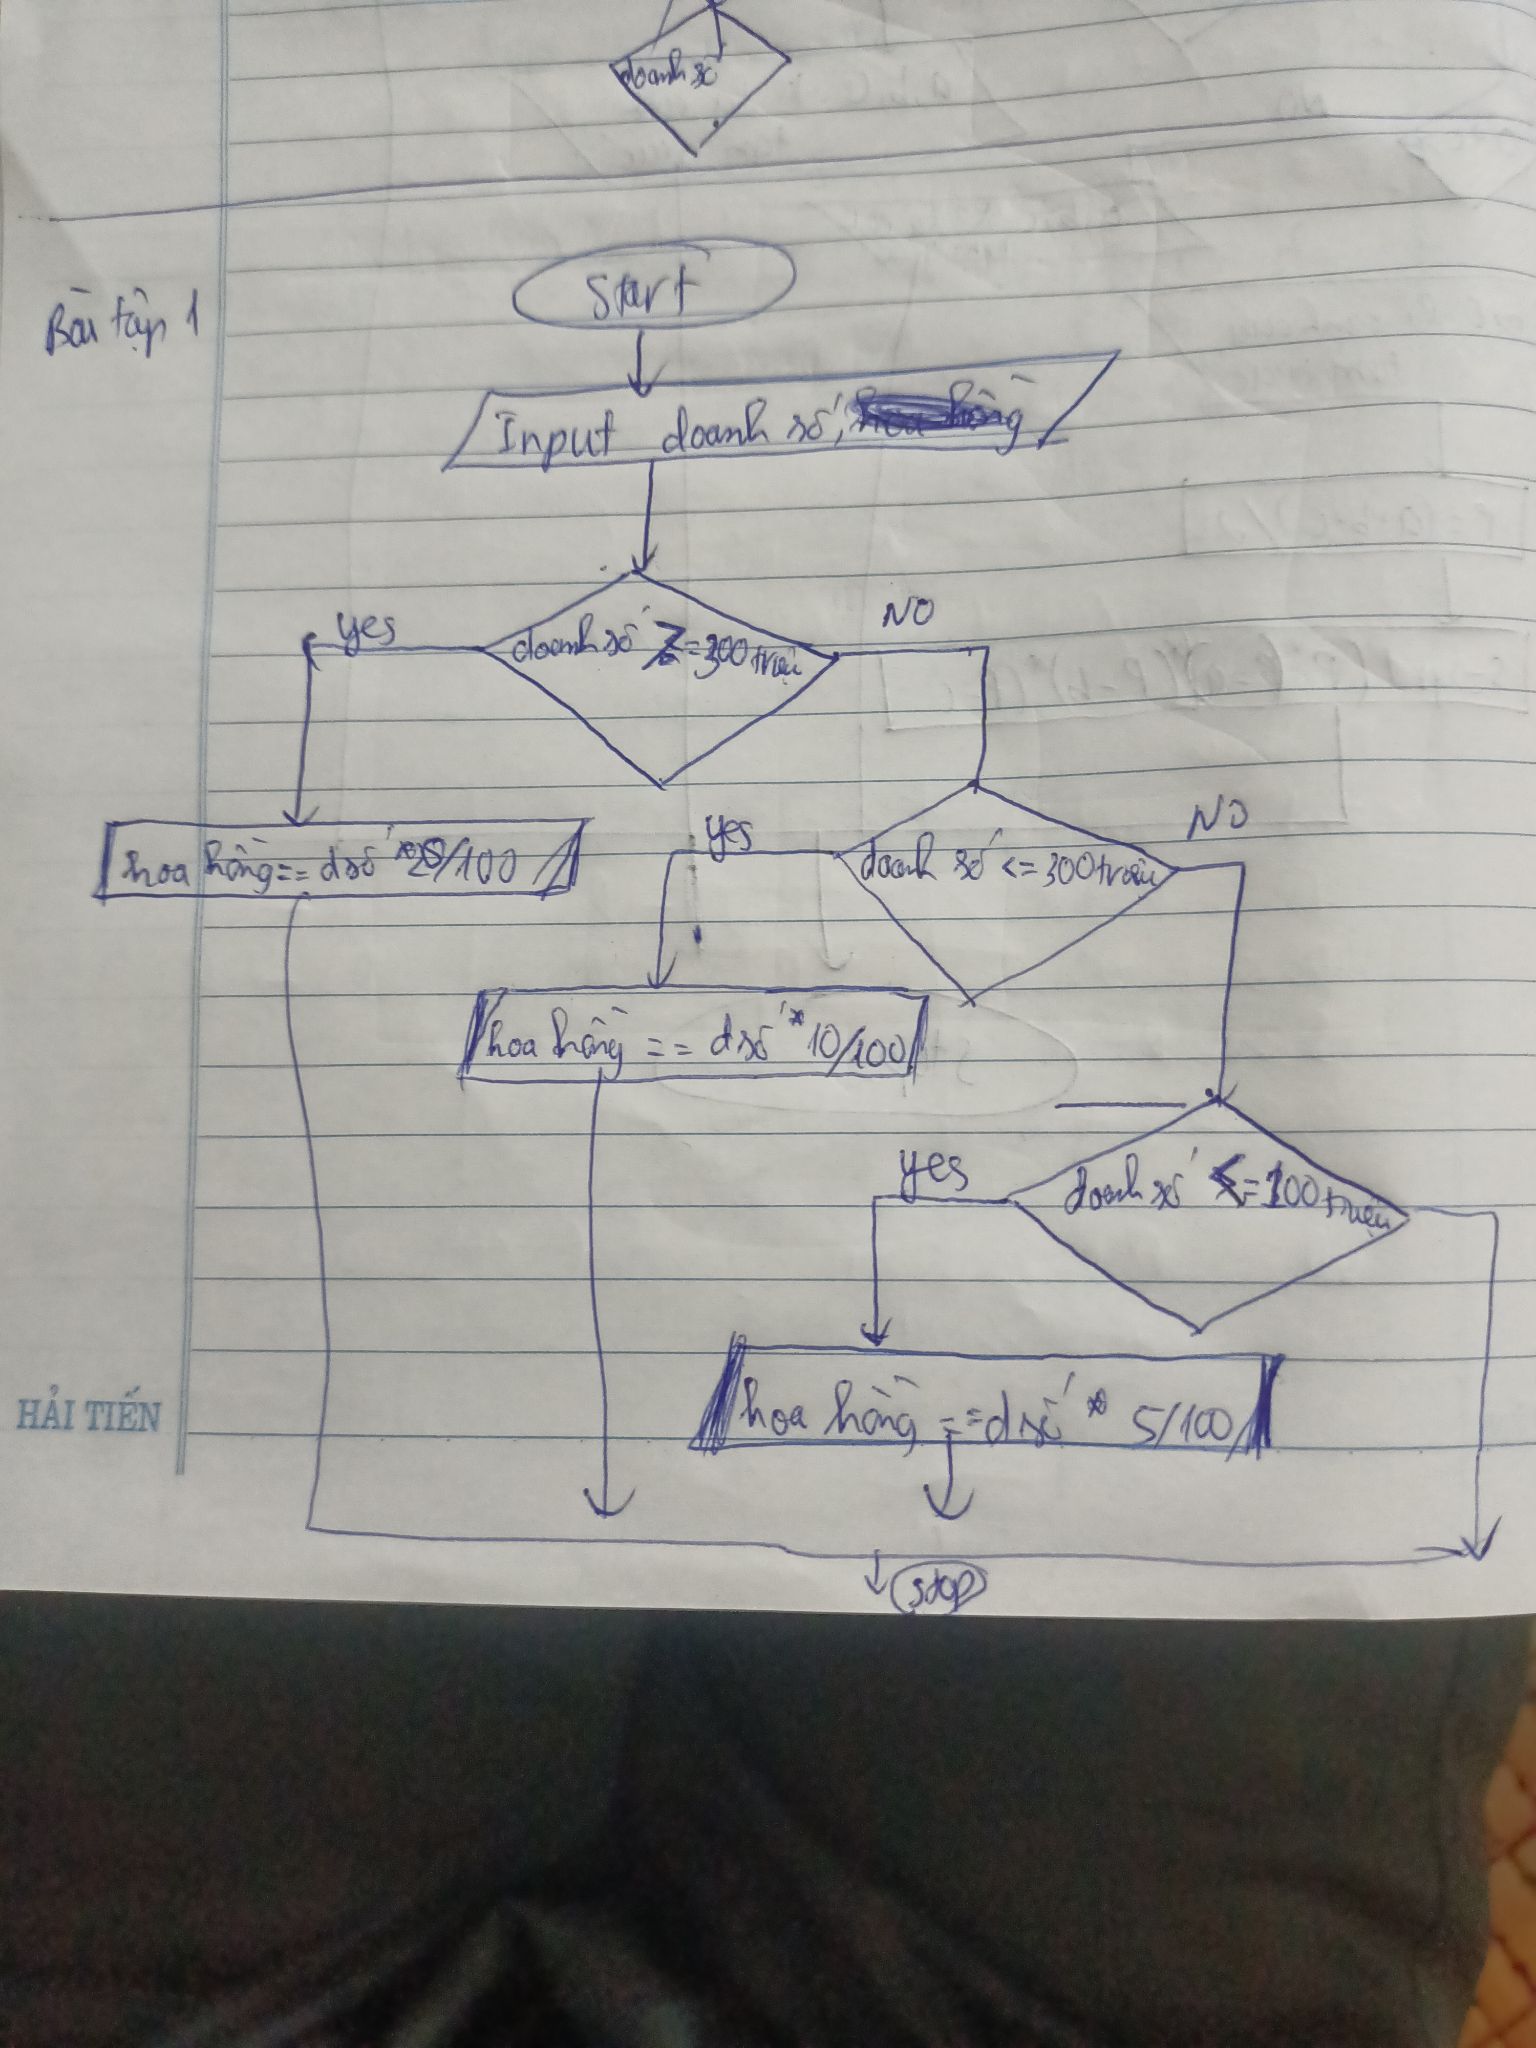 doanh số
Bài tập 1
Start
Input doanh số,
yes
doanh số >=300triệu
NO
hoa hồng== dsố *20/100
yes
doanh số <=300triệu
NO
hoa hồng == dsố * 10/100
yes
doanh số <=100triệu
hoa hồng ==dsố * 5/100
HẢI TIẾN
stop